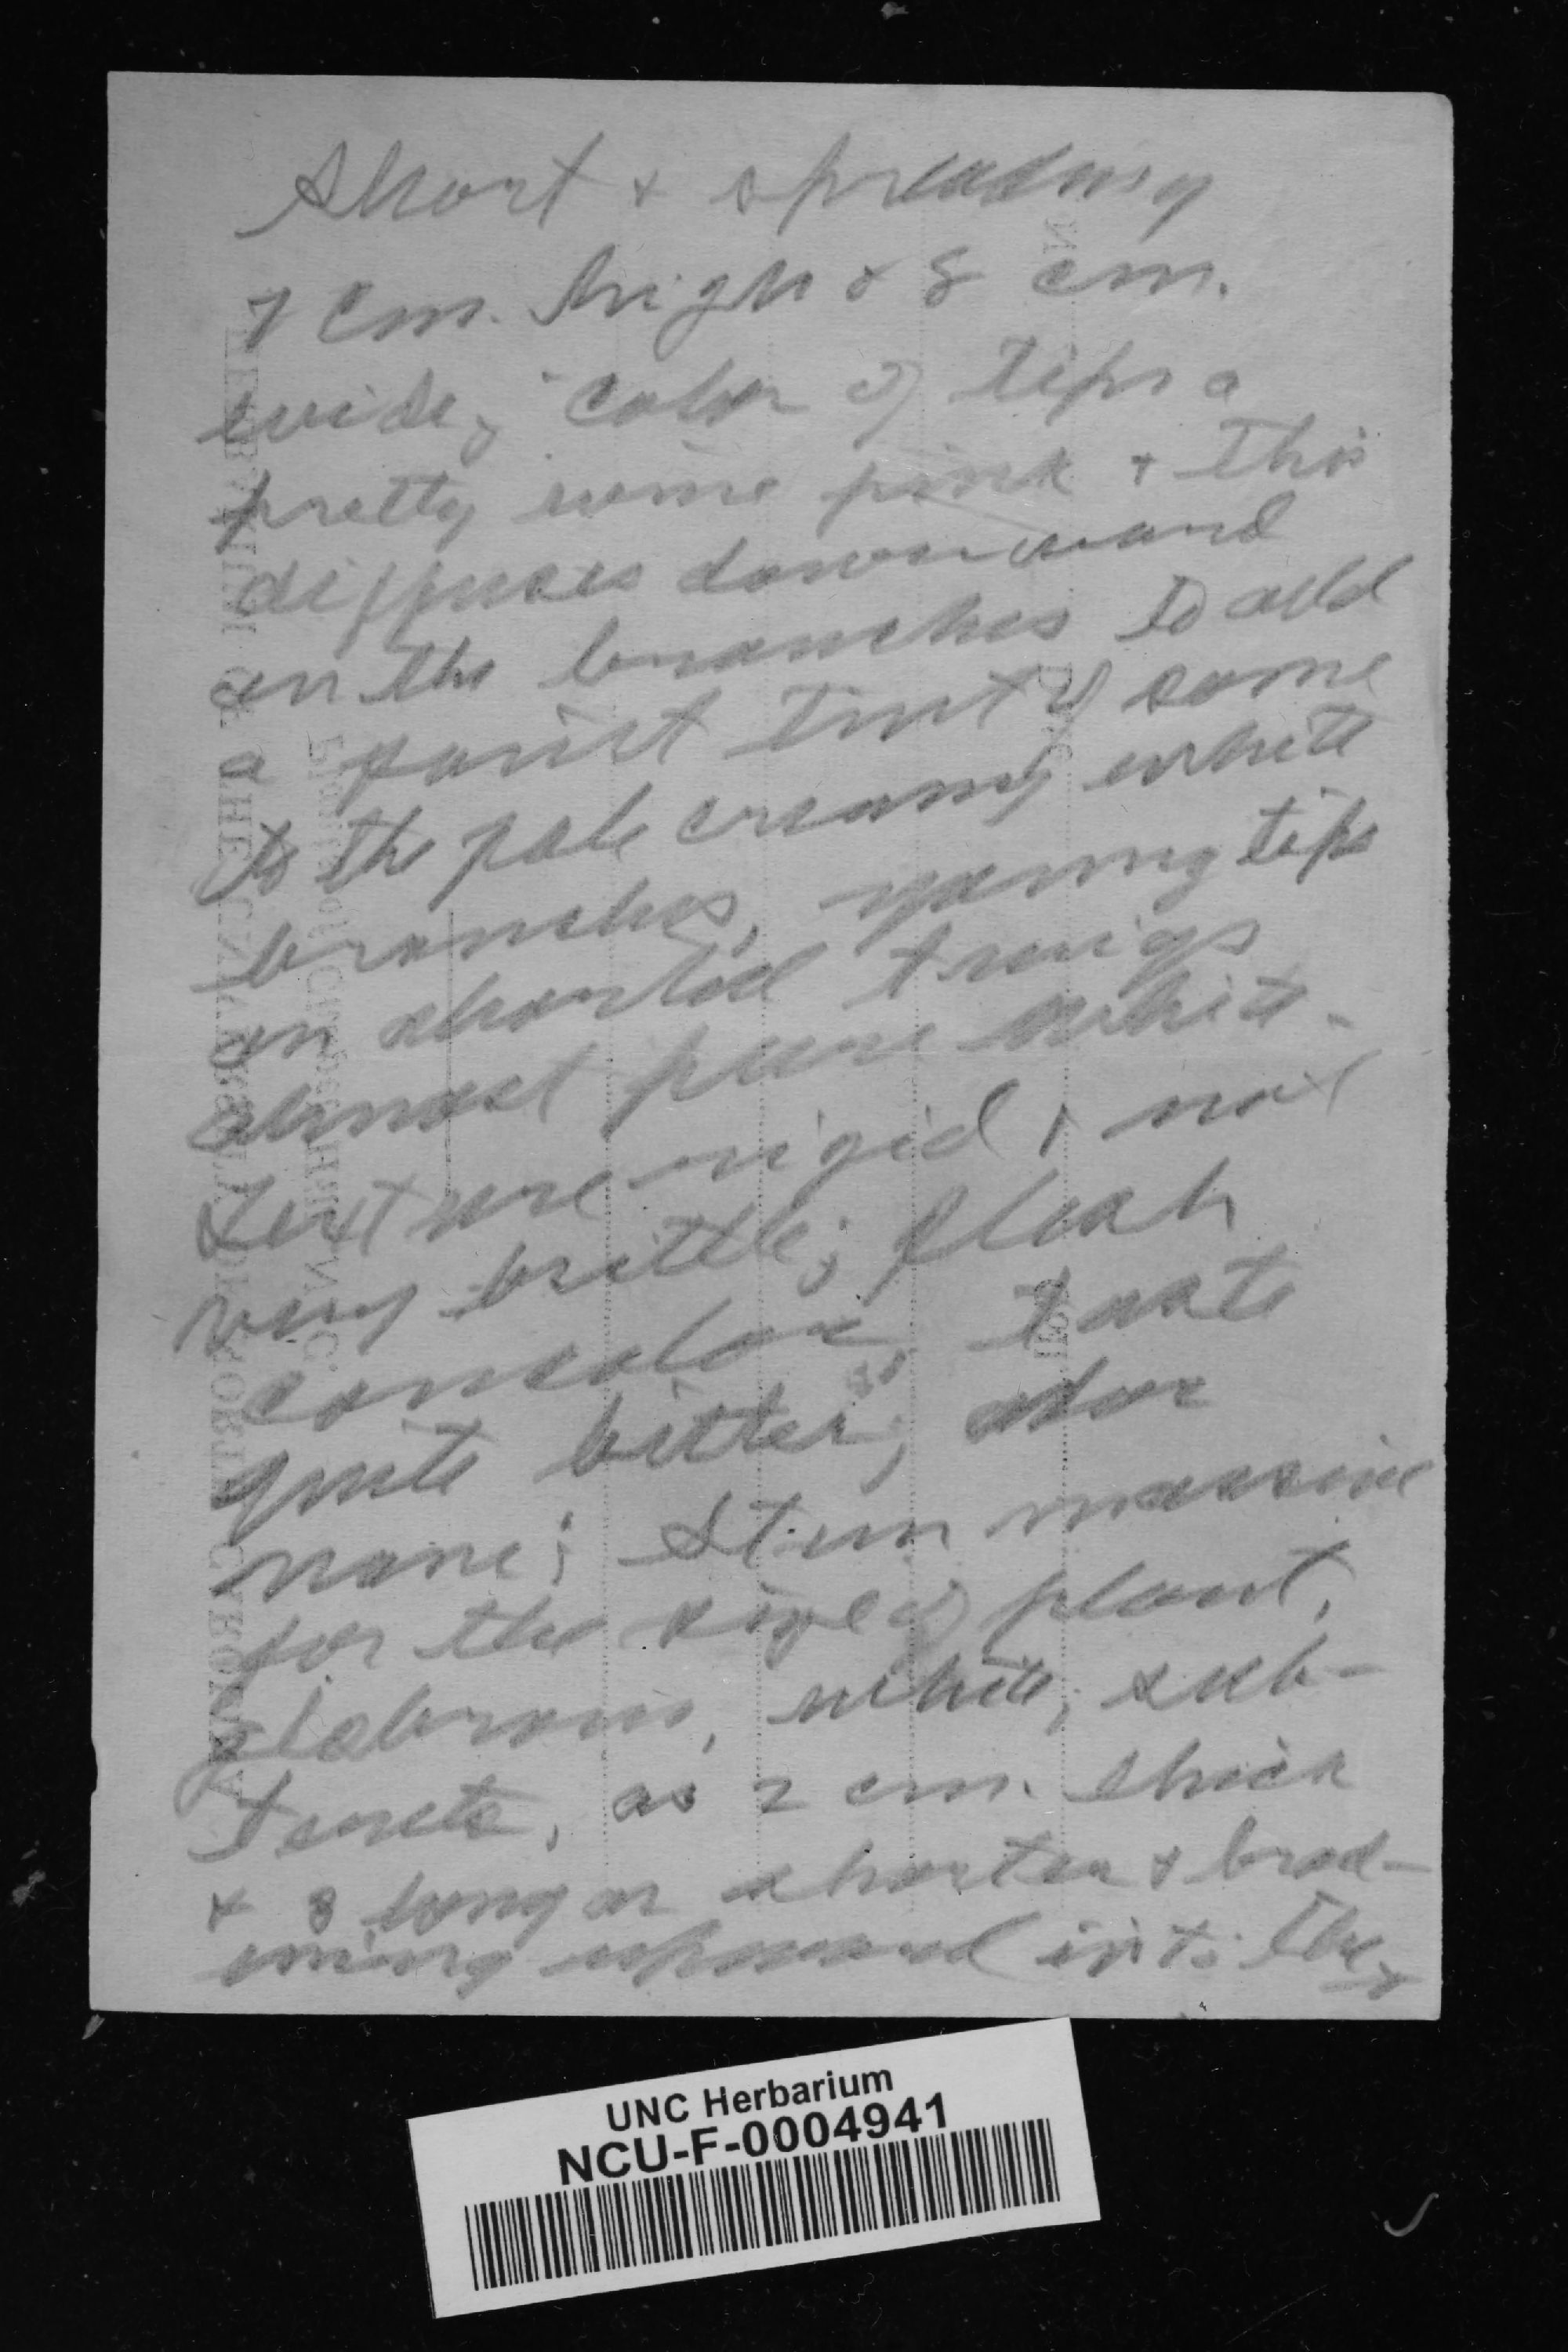 Short & spreading
7 cm. high & 8 cm.
wide, color of tips a
pretty wine pink & this
diffuses downward
on the branches to add
a faint tint of same
to the pale creamy white
branches, young tips
on aborted twigs
almost pure white.
Texture rigid, not
very brittle; flesh
concolor, taste
quite bitter; odor
none; stem massive
for the size of plant,
glabrous, white, sub-
terete, as 2 cm. thick
& 3 long or shorter & broad-
ening upward into the
UNC Herbarium
NCU-F-0004941